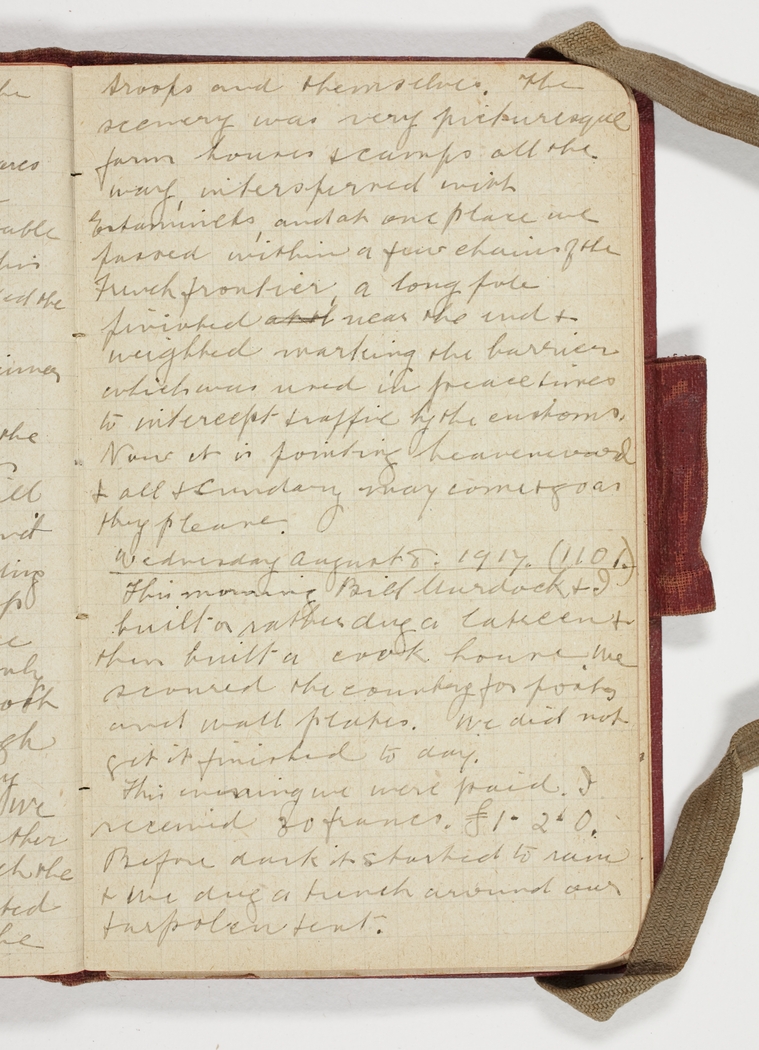 he
ares
able
his
ed the
inner
the
s
ill
nit
ling
up
ue
only
ook
gh
y
we
other
ch the
ted
he
troops and themselves. The
scenery was very picturesque
farm houses & camps all the
way, interspersed with
Estaminets, and at one place we
passed within a few chains of the
French frontier, a long pole
pivoted near the end &
weighted marking the barrier
which was used in peace times
to intercept traffic by the customs.
Now it is pointing heavenward
& all & sundary may come & go as
they please.
Wednesday August 8: 1917. (1101)
This morning Bill Murdock & I
built or rather dug a latreen &
then built a cook house. We
scoured the country for posts
and wall plates. We did not
get it finished to day.
This evening we were paid. I
received 30 francs. £1-2-0.
Before dark it started to rain
& we dug a trench around our
tarpolen tent.